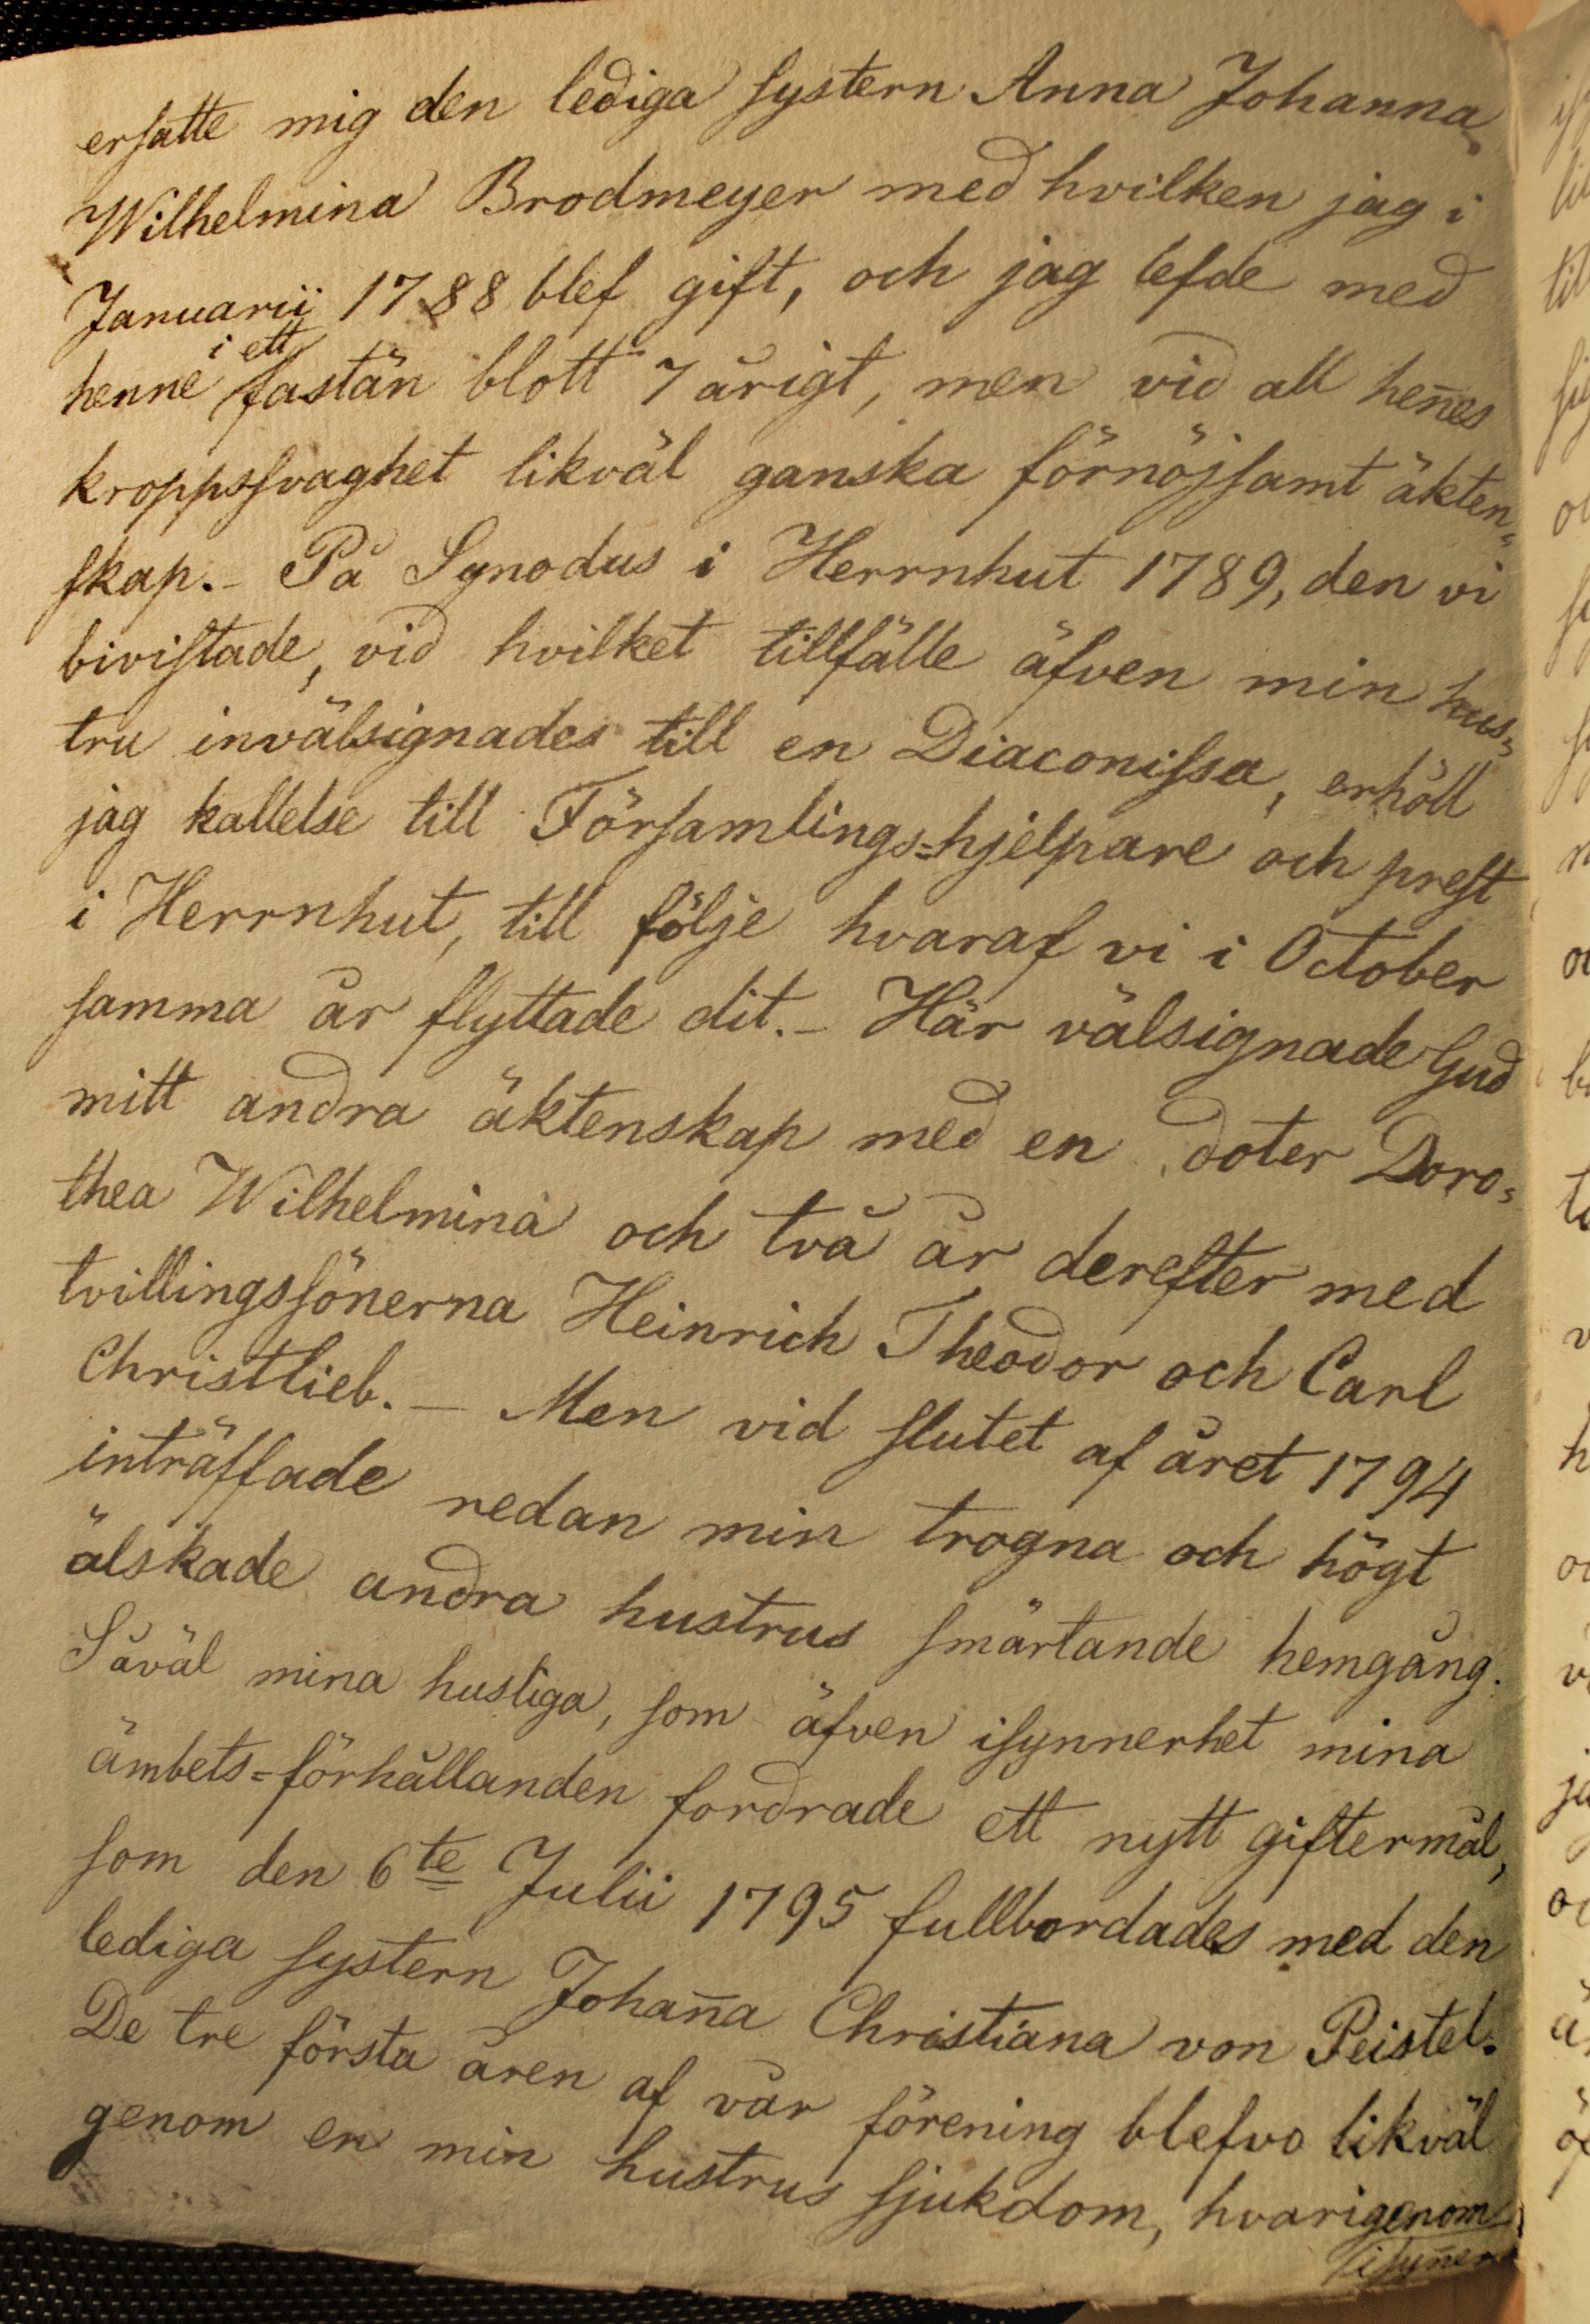 ersatte mig den lediga systern Anna Johanna
Wilhelmina Brodmeyer med hvilken jag i
Januarii 1788 blef gift, och jag lefde med
i ett
henne fastän blott 7 årigt, men vid all hen̄es
kroppssvaghet likväl ganska förnöjsamt äkten=
skap. – På Synodus i Herrnhut 1789, den vi
bivistade, vid hvilket tillfälle äfven min hus=
tru invälsignades till en Diaconissa, erhöll
jag kallelse till Församlings=hjelpare och prest
i Herrnhut, till följe hvaraf vi i October
samma år flyttade dit. – Här välsignade Gud
mitt andra äktenskap med en doter Doro=
thea Wilhelmina och två år derefter med
tvillingssönerna Heinrich Theodor och Carl
Christlieb. – Men vid slutet af året 1794
inträffade redan min trogna och högt
älskade andra hustrus smärtande hemgång.
Såväl mina husliga, som äfven isynnerhet mina
ämbets=förhållanden fordrade ett nytt giftermål,
som den 6te Julii 1795 fullbordades med den
lediga systern Johan̄a Christiana von Peistel.
De tre första åren af vår förening blefvo likväl
genom en min hustrus sjukdom, hvarigenom